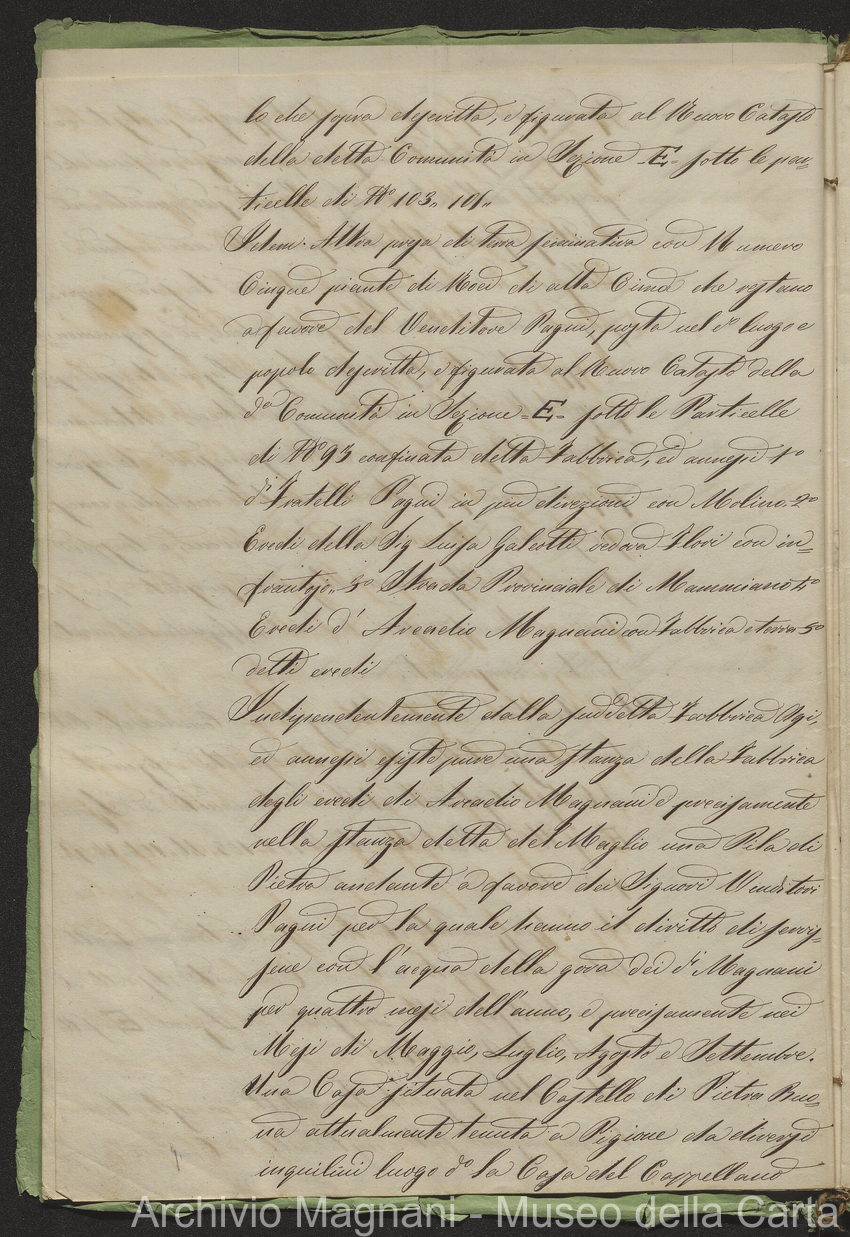 lo che sopra descritta, e figurata al Nuovo Catasto
della detta Comunità in Sezione =E= sotto le par=
ticelle di N° 103,, 101,,
Item. Altra presa di terra seminativa con Numero
Cinque piante di Noci di alta Cima che restano
a favore del Venditore Pagni, posta nel d° luogo e
popolo descritta, e figurata al Nuovo Catasto della
da Comunità in Sezione =E= sotto le Particelle
di N° 93 confinata detta Fabbrica, ed annessi 1°
di Fratelli Pagni in più direzioni con Molino. 2°
Eredi della Sig Luisa Galeotti vedova Flori con in=
frantojo,, 3° Strada Provinciale di Mammiano 4°
Eredi d' Arcadio Magnani con Fabbrica e terra 5°
detti eredi
Indipendentemente dalla suddetta Fabbrica
ed annessi esiste pure una stanza della Fabbrica
degli eredi di Arcadio Magnani e precisamente
nella stanza detta del Maglio una Pila di
Pietra andante a favore dei Signori Venditori
Pagni per la quale hanno il diritto di servir=
sene con l'acqua della gora dei di Magnani
per quattro mesi dell'anno, e precisamente nei
Mesi di Maggio, Luglio, Agosto e Settembre.
Una Casa situata nel Castello di Pietra Buo=
na attualmente tenuta a Pigione da diversi
inquilini luogo d° la Casa del Cappellano
Archivio Magnani - Museo della Carta